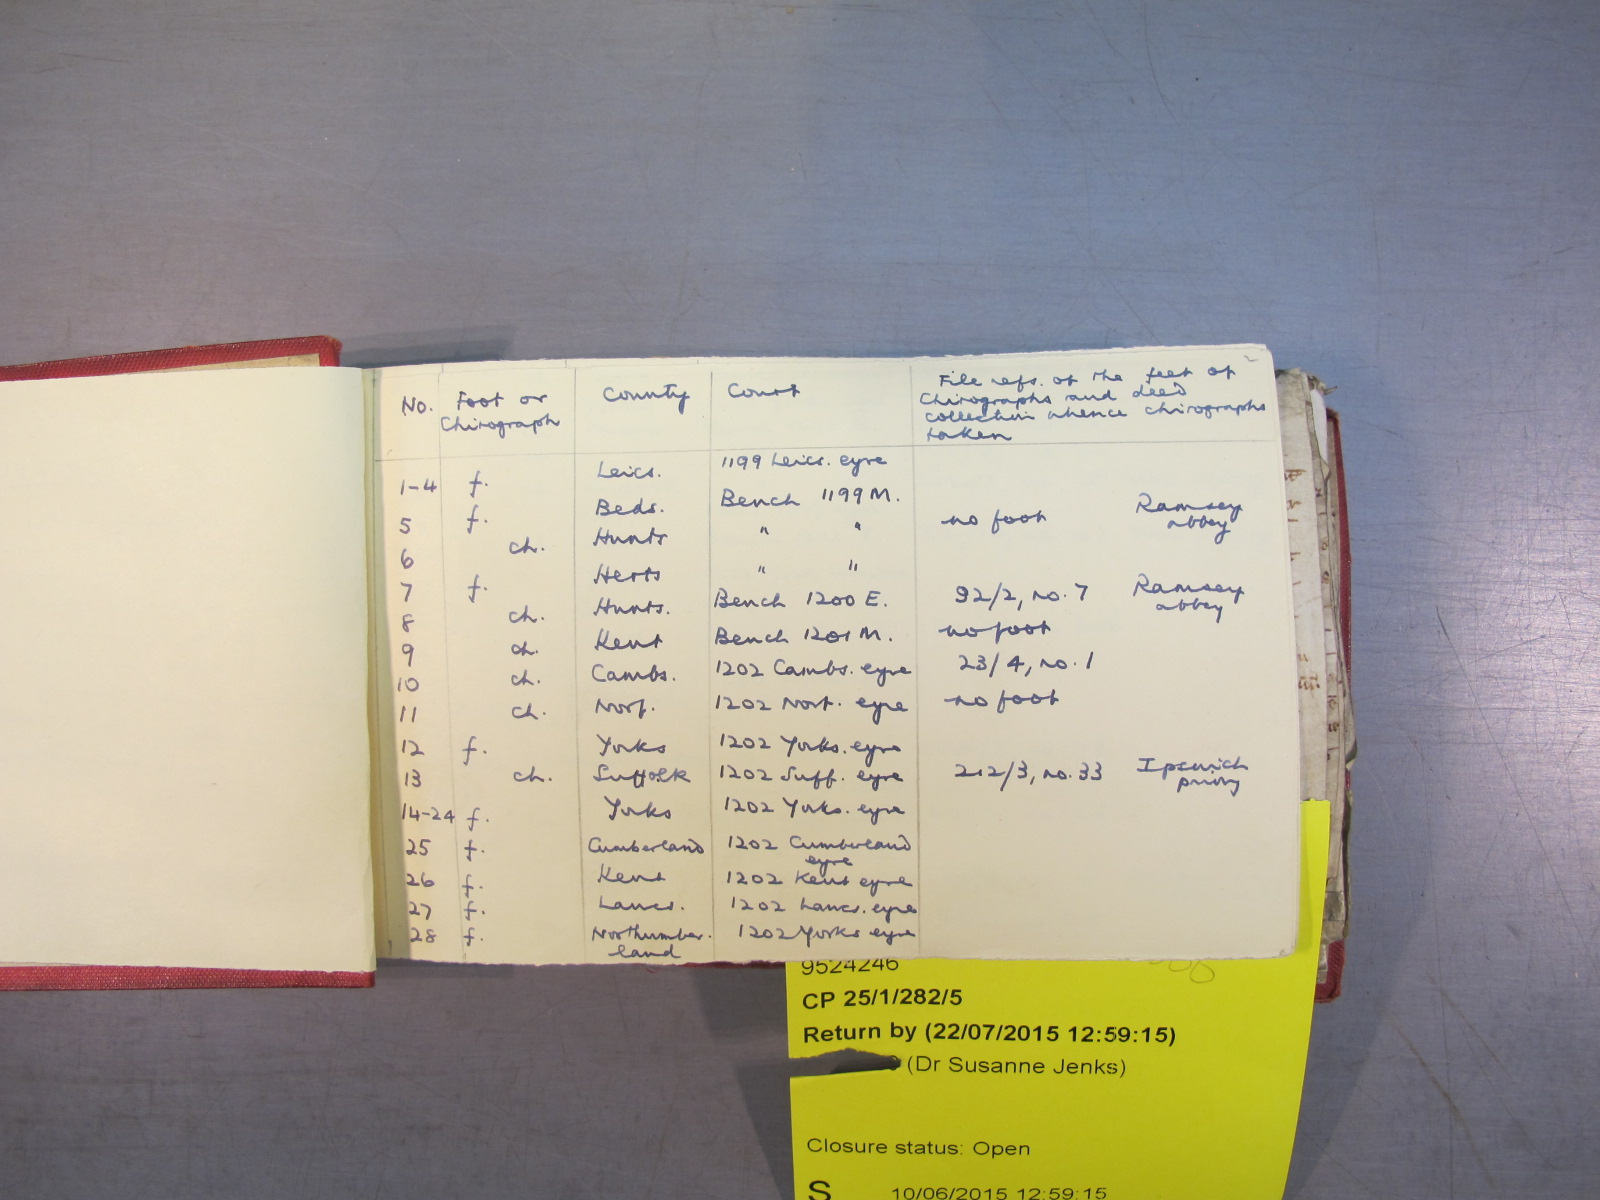 2
No. Foot or Chirograph County Court File refs. of the feet of Chirographs and deed collection whence chirographs taken
1-4 f. Leics. 1199 Leics. eyre
5 f. Beds. Bench 1199 M.
6 ch. Hunts " " no foot Ramsey abbey
7 f. Herts " "
8 ch. Hunts. Bench 1200 E. 92/2, no. 7 Ramsey abbey
9 ch. Kent Bench 1201 M. no foot
10 ch. Cambs. 1202 Cambs. eyre 23/4, no. 1
11 ch. Norf. 1202 Norf. eyre no foot
12 f. Yorks 1202 Yorks. eyre
13 ch. Suffolk 1202 Suff. eyre 212/3, no. 33 Ipswich priory
14-24 f. Yorks 1202 Yorks. eyre
25 f. Cumberland 1202 Cumberland eyre
26 f. Kent 1202 Kent eyre
27 f. Lancs. 1202 Lancs. eyre
28 f. Northumberland 1202 Yorks eyre
9524246
CP 25/1/282/5
Return by (22/07/2015 12:59:15)
(Dr Susanne Jenks)
Closure status: Open
S 10/06/2015 12:59:15